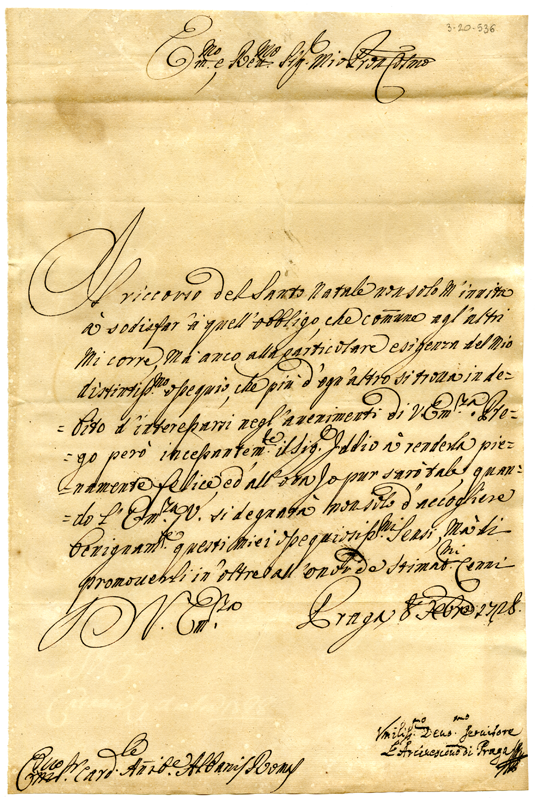 3-20-536
Em.mo e Rev.mo Sig. Mio Pron Colmo
Al riccorso del Santo Natale non solo m'invita
à sodisfar à quell'obbligo, che com̄une agl'altri
mi corre, mà anco alla particulare esigenza del mio
distintiss.mo ossequio, che più d'ogn'altro si troua in de-
-bito d'interessarsi negl'auenimenti di V. Em.za Pre-
-go però incessantem.te il Sig. Iddio à renderla pie-
-namente felice ed'all'ora Io pur sarò tale, quan-
-do l'Em.za V. si degnarà non solo d'accogliere
benignam.te questi miei ossequiosiss.mi Sensi, Mà di
promouerli in'oltre all'onor de stimat.mi Cenni
D. V. Em.za Praga 8 Xbre 1728.
Vmiliss.mo Deuo.mo Seruitore
L'Arciuescouo di Praga
Card.le Annib.e Albani Roma